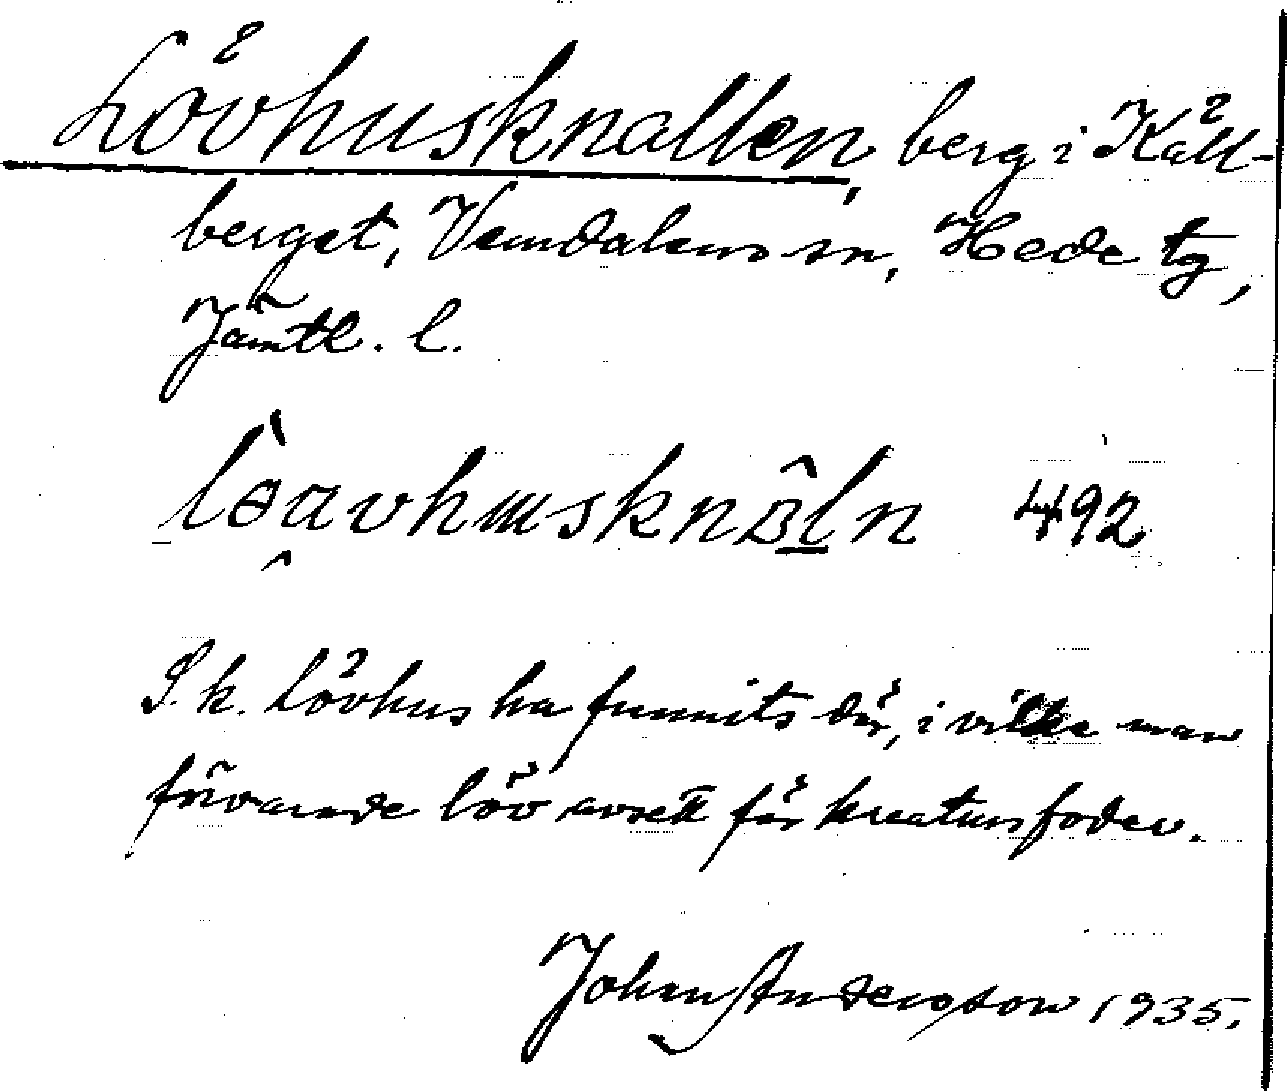 Lövhusknallen, berg i Käll-
berget, Vemdalens sn, Hede tg,
Jämtl. l.
492
S.k. lövhus ha funnits där, i vilka man
förvarade löv avsett för kreatursfoder.
Johan Andersson 1935.